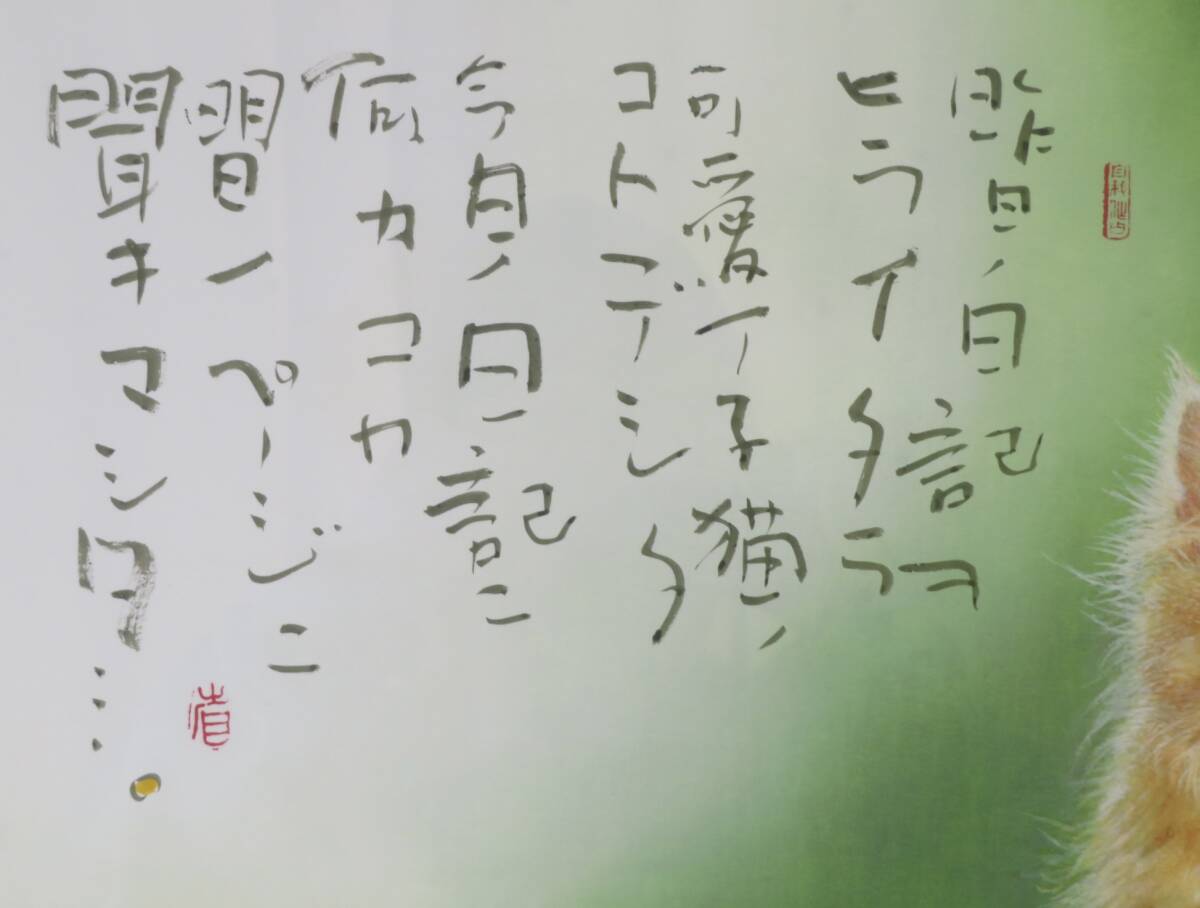 昨日ノ日記ヲ
ヒライタラ
可愛イ子猫ノ
コトデシタ
今日ノ日記ニ
何カコカ
明日ノページニ
聞キマシ…